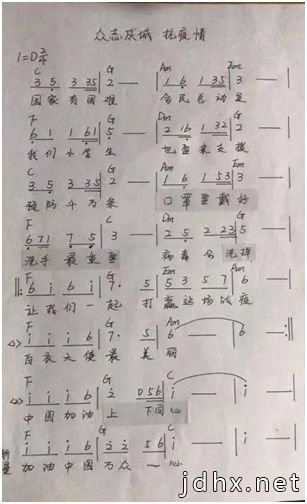 众志成城 抗疫情
1=D 2/4
C G Am Em
3 5 3 35 | 2 — | 1 6 1 35 | 3 — |
国家有困难 全民总动员
F G Dm G
6 1 1 61 | 5 — | 2 16 1 32 | 2 — |
我们小学生 也要来支援
C G Am Em
3 5 3 35 | 2 — | 1 6 1 53 | 3 — |
预防千万条 口罩要戴好
F G C Dm G
6 71 7 5 | 3 — | 2 5 2 23 | 5 — |
洗手最重要 病毒会洗掉
F G Em Am
6 i 6 i | 7 · 5 | 5 3 5 7 | 6 — |
让我们一起 打赢这场战疫
F G Am
i i i 6 | 7 · 5 | 6 — | 6 — :||
白衣天使最美丽
F G C
i i i 6 | 2 0 56 | i — | i — |
中国加油上下同心
F G C
i i i 6 | 2 2 56 | i — | i — ||
加油中国万众一心
jdhx.net